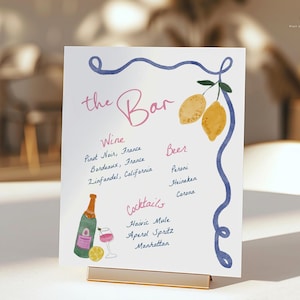 the Bar
Wine
Pinot Noir, France
Bordeaux, France
Zinfandel, California
Beer
Peroni
Heineken
Corona
Cocktails
Moscow Mule
Aperol Spritz
Manhattan